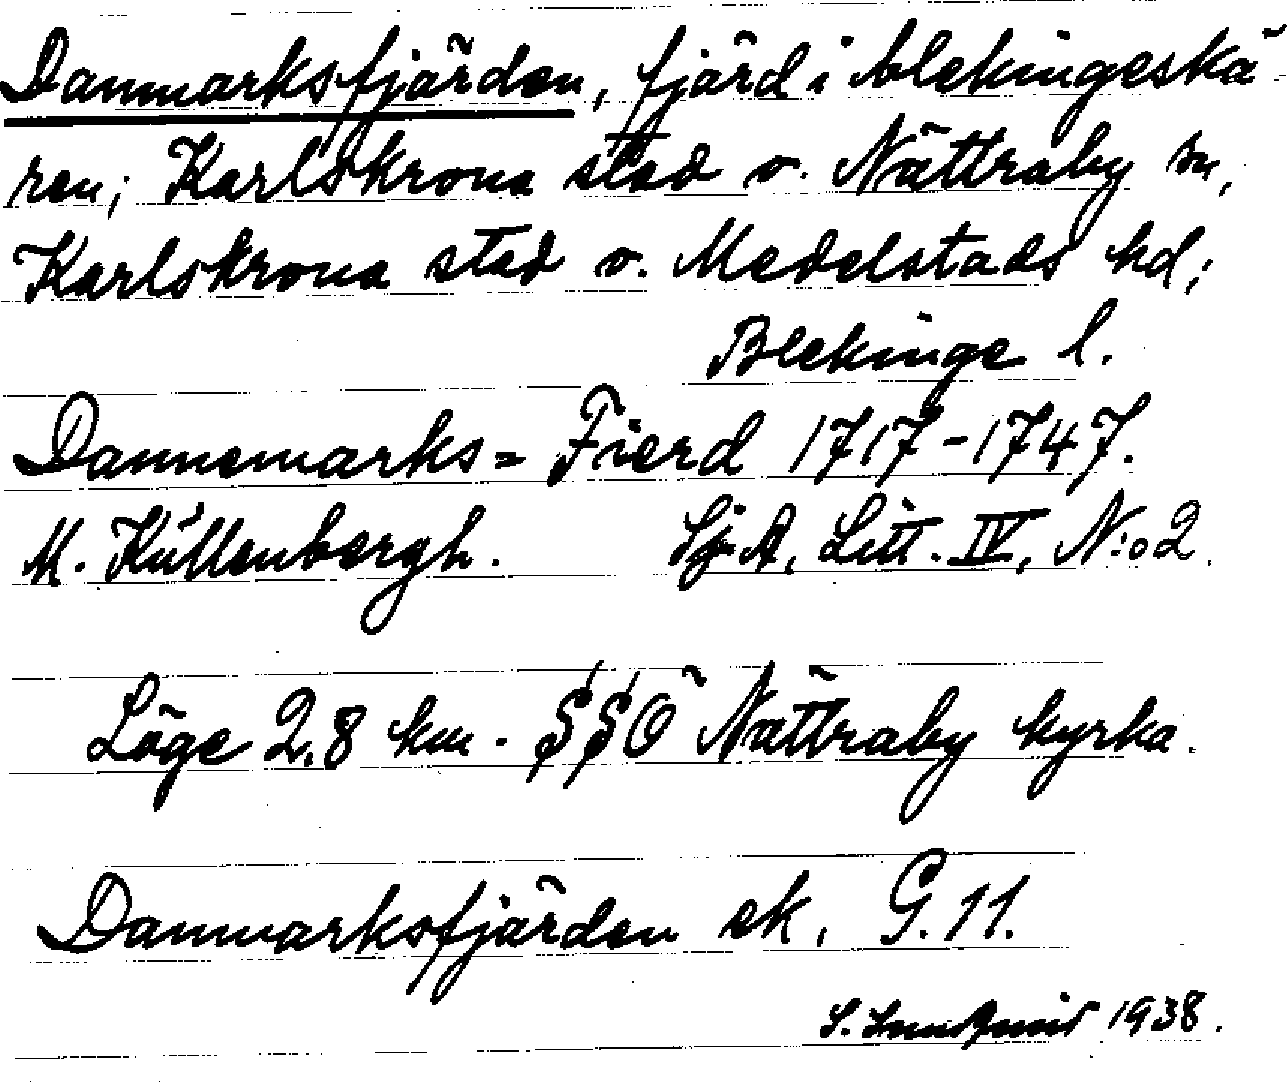 Danmarksfjärden, fjärd i blekingeskä-
ren; Karlskrona stad o. Nättraby sn,
Karlskrona stad o. Medelstads hd;
Blekinge l.
Dannemarks= Fierd 1717-1747.
M. Küllenbergh. Sj. A. Litt. IV, N:o 2.
Läge 2.8 km. SSÖ Nättraby kyrka.
Danmarksfjärden ek. G. 11.
S. 1938.